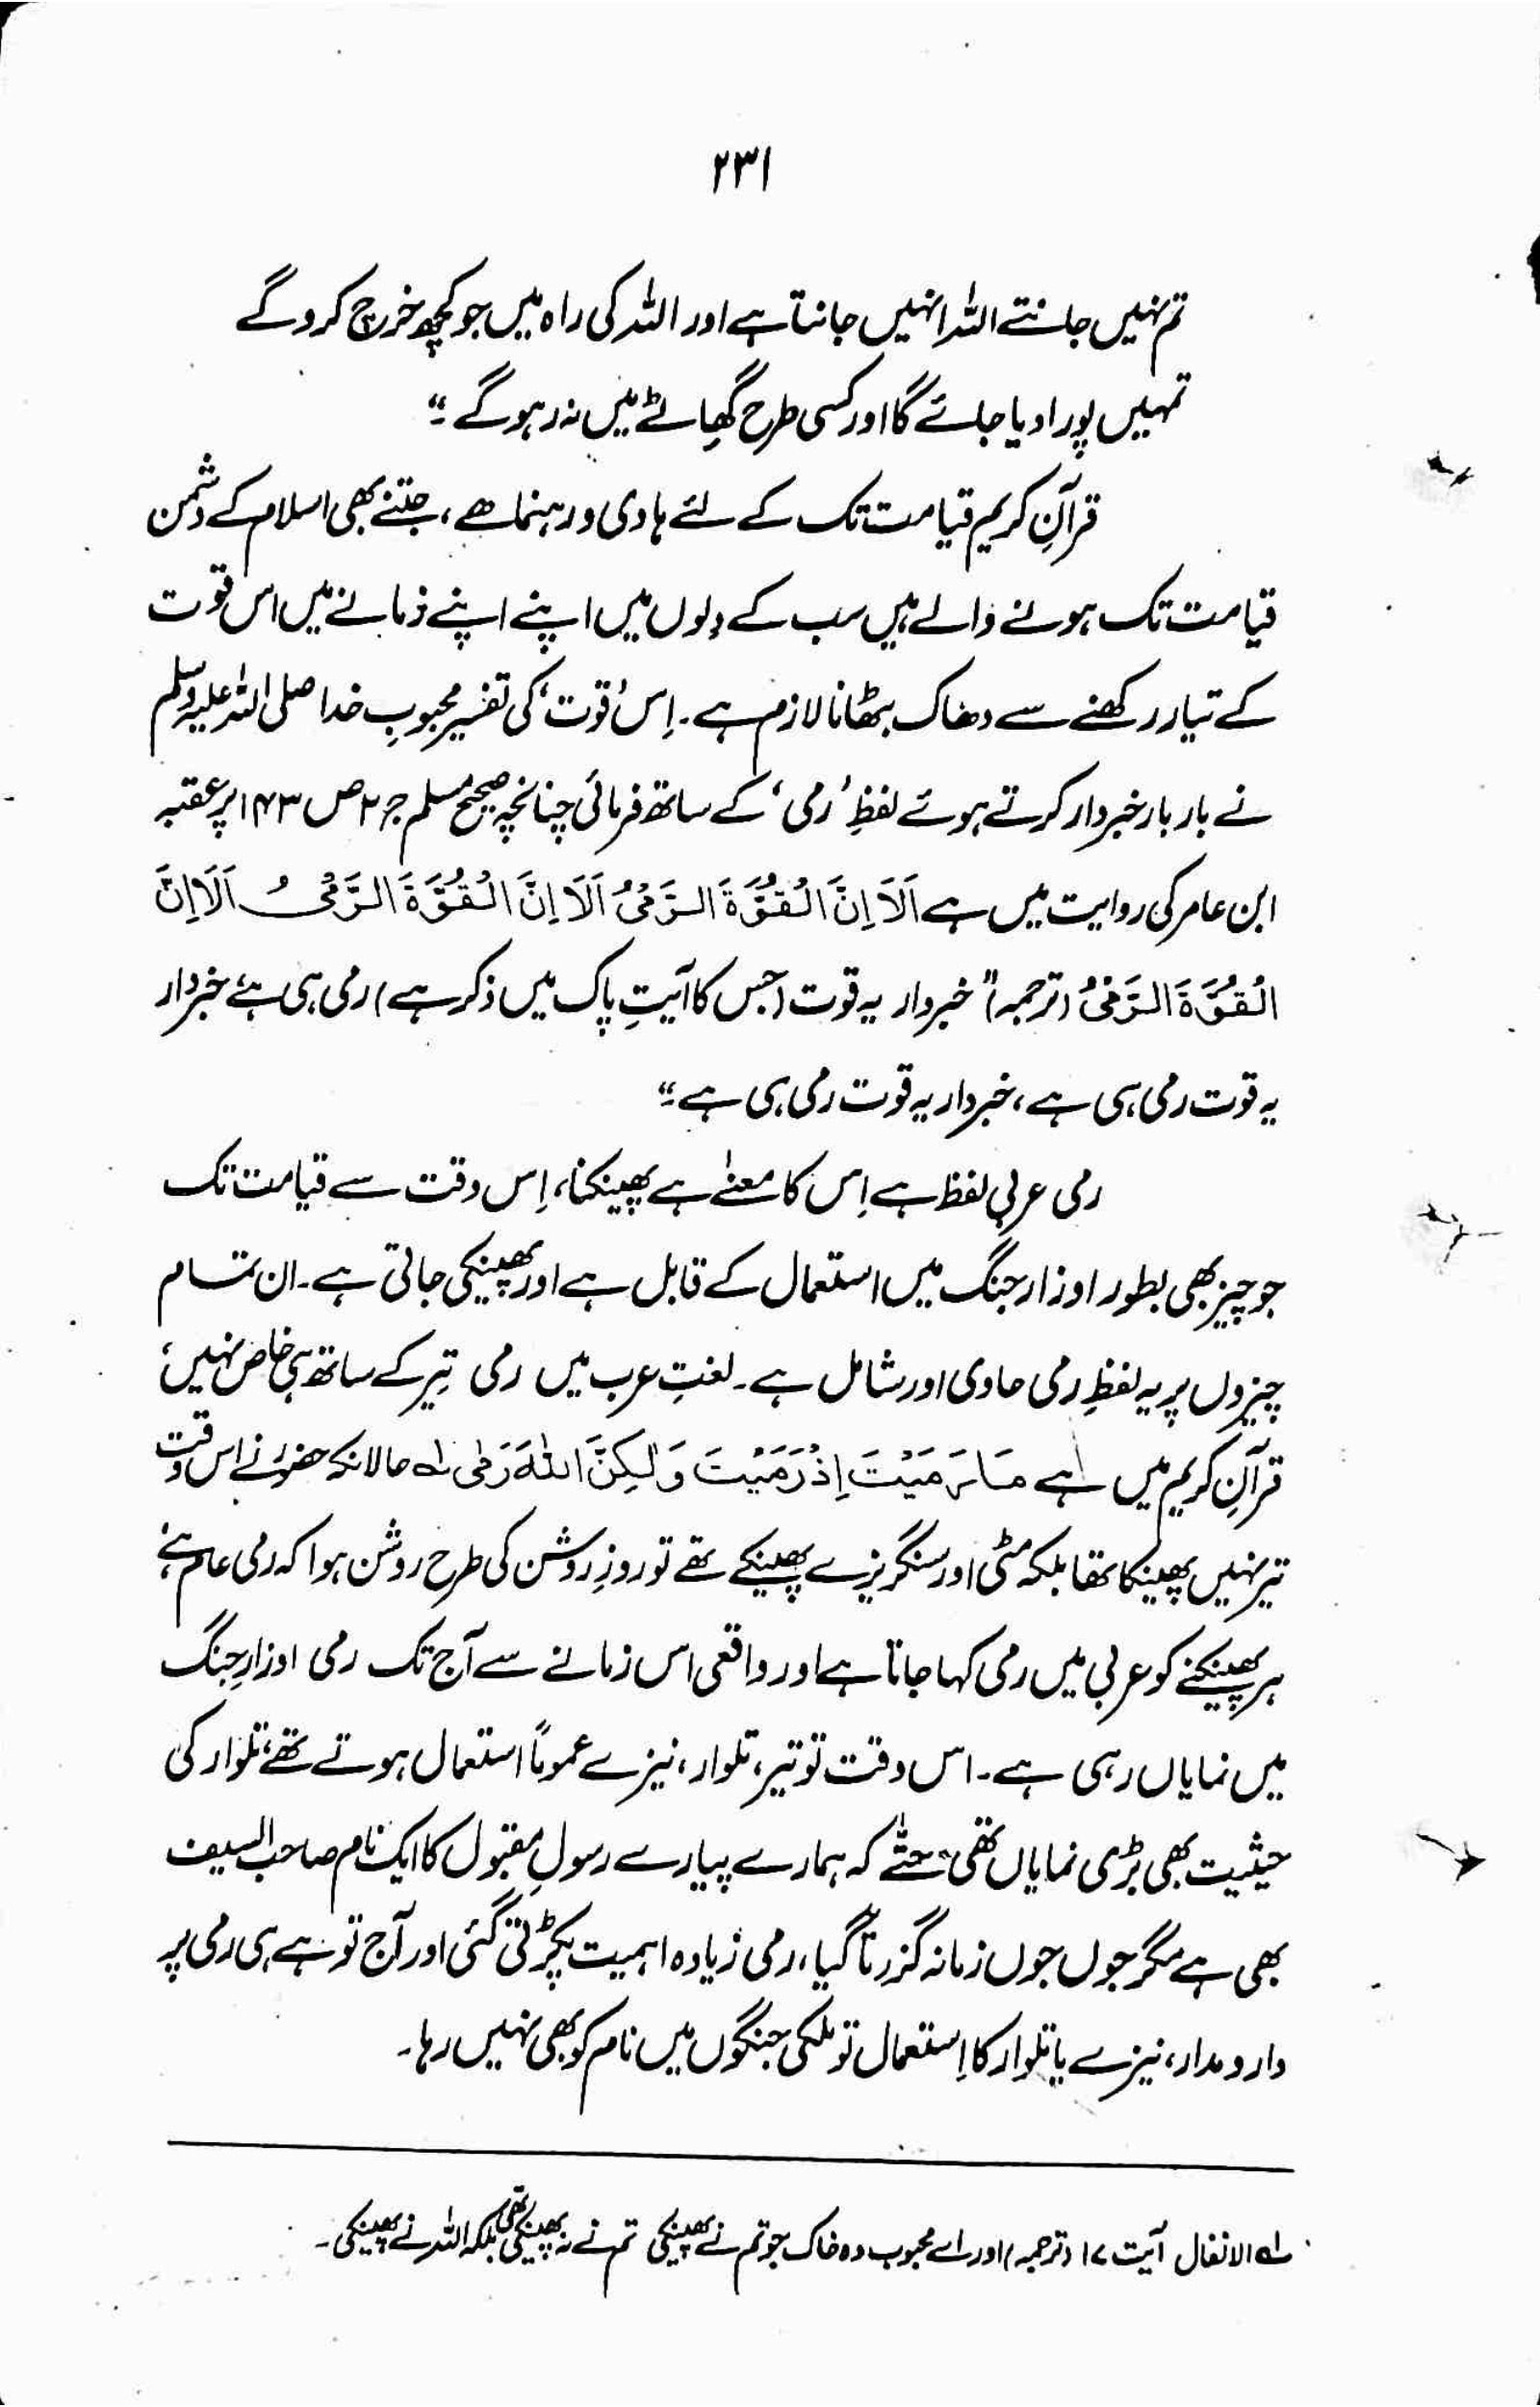 ۲۳۱
تم نہیں جانتے اللہ انہیں جانتا ہے اور اللہ کی راہ میں جو کچھ خرچ کرو گے
تمہیں پورا دیا جائے گا اور کسی طرح گھاٹے میں نہ رہو گے ؂"
قرآنِ کریم قیامت تک کے لئے ہادی و رہنما ہے، جتنے بھی اسلام کے دشمن
قیامت تک ہونے والے ہیں سب کے دلوں میں اپنے اپنے زمانے میں اس قوت
کے تیار رکھنے سے دھاک بٹھانا لازم ہے۔ اِس 'قوت' کی تفسیر محبوبِ خدا صلی اللہ علیہ وسلم
نے بار بار خبردار کرتے ہوئے لفظِ 'رمی' کے ساتھ فرمائی چنانچہ صحیح مسلم ج ۲ ص ۱۴۳ پر عقبہ
ابن عامر کی روایت میں ہے اَلَا اِنَّ الْقُوَّةَ الرَّمْیُ اَلَا اِنَّ الْقُوَّةَ الرَّمْیُ اَلَا اِنَّ
الْقُوَّةَ الرَّمْیُ (ترجمہ) "خبردار یہ قوت (جس کا آیتِ پاک میں ذکر ہے) رمی ہی ہے، خبردار
یہ قوت رمی ہی ہے، خبردار یہ قوت رمی ہی ہے۔"
رمی عربی لفظ ہے اِس کا معنےٰ ہے پھینکنا، اِس وقت سے قیامت تک
جو چیز بھی بطور اوزار جنگ میں استعمال کے قابل ہے اور پھینکی جاتی ہے۔ ان تمام
چیزوں پر یہ لفظِ رمی حاوی اور شامل ہے۔ لغتِ عرب میں رمی تِیر کے ساتھ ہی خاص نہیں،
قرآنِ کریم میں ہے مَا رَمَیْتَ اِذْ رَمَیْتَ وَلٰکِنَّ اللہَ رَمٰی لہ حالانکہ حضور نے اس وقت
تیر نہیں پھینکا تھا بلکہ مٹی اور سنگریزے پھینکے تھے تو روزِ روشن کی طرح روشن ہوا کہ رمی عام ہے،
ہر پھینکنے کو عربی میں رمی کہا جاتا ہے اور واقعی اس زمانے سے آج تک رمی اوزارِ جنگ
میں نمایاں رہی ہے۔ اس وقت تو تیر، تلوار، نیزے عموماً استعمال ہوتے تھے، تلوار کی
حیثیت بھی بڑی نمایاں تھی، حتّٰے کہ ہمارے پیارے رسولِ مقبول کا ایک نام صاحب السیف
بھی ہے مگر جوں جوں زمانہ گزرتا گیا، رمی زیادہ اہمیت پکڑتی گئی اور آج تو ہے ہی رمی پر
دارومدار، نیزے یا تلوار کا اِستعمال تو ملکی جنگوں میں نام کو بھی نہیں رہا۔
لہ الانفال آیت ۱۷ (ترجمہ) اور اے محبوب وہ خاک جو تم نے پھینکی تم نے نہ پھینکی تھی بلکہ اللہ نے پھینکی۔